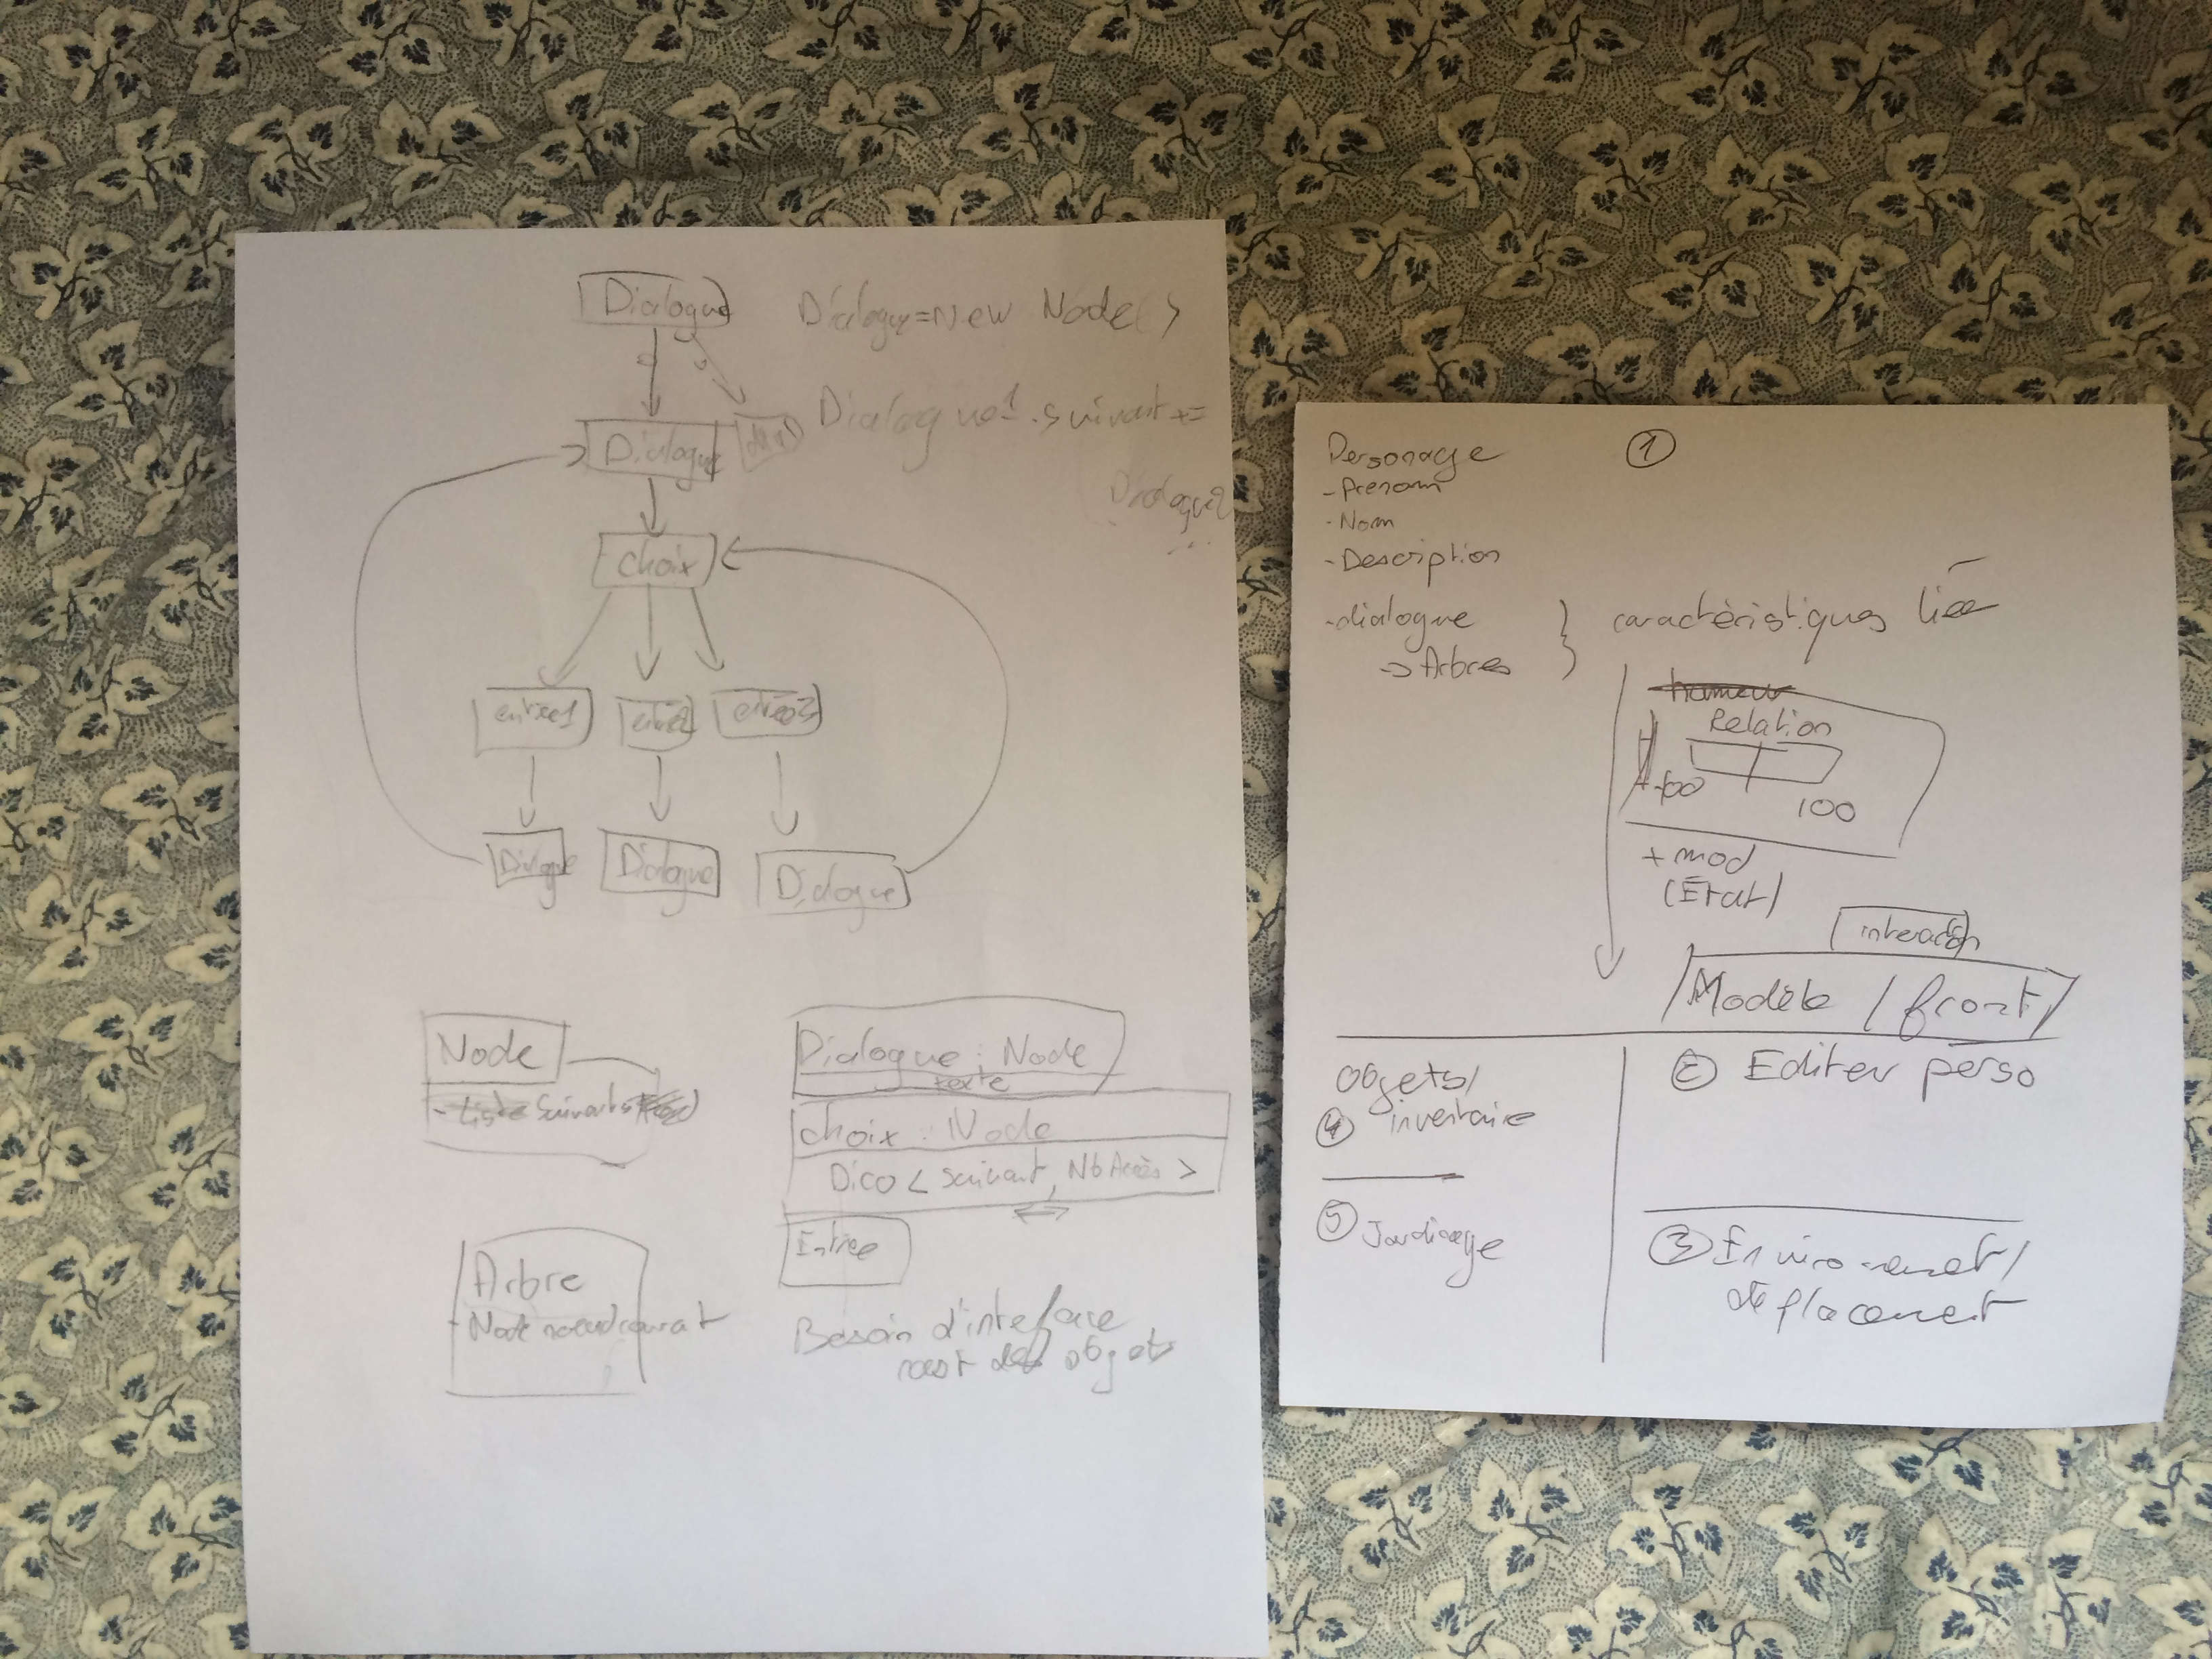 Dialogue
Dialogue=New Node()
Dialogue
Dialogue1.suivant +=
Dialogue2
...
choix
entrée1
entrée2
entrée3
Dialogue
Dialogue
Dialogue
Node
- Liste suivants
Dialogue : Node
texte
choix : Node
Dico < suivant, Nb Accès >
Entrée
Arbre
- Node noeudcourant
Besoin d'interface
objets
Personage
①
- Prenom
- Nom
- Description
- dialogue
→ Arbres
} caractéristiques liée
humeur
Relation
-100
100
+ mod
(État)
interaction
Modèle / front
Objets/
④ inventaire
② Editer perso
⑤ Jardinage
③ Environement/
déplacement